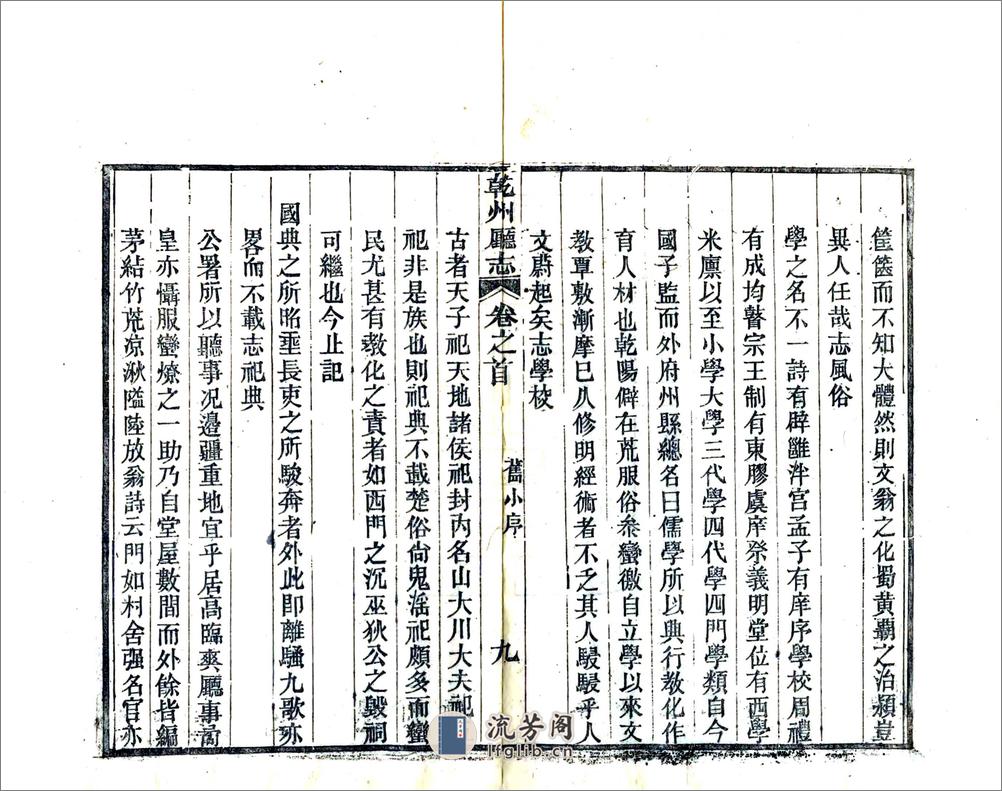 筐篋而不知大體然則文翁之化蜀黃霸之治潁豈
異人任哉志風俗
學之名不一詩有辟雝泮宮孟子有庠序學校周禮
有成均瞽宗王制有東膠虞庠祭義明堂位有西學
米廩以至小學大學三代學四代學四門學類自今
國子監而外府州縣總名曰儒學所以興行教化作
育人材也乾陽僻在荒服俗叅蠻徼自立學以來文
教覃敷漸摩已久修明經術者不乏其人駸駸乎人
文蔚起矣志學校
乾州廳志 卷之首 舊小序 九
古者天子祀天地諸侯祀封內名山大川大夫祀
祀非是族也則祀典不載楚俗尙鬼滛祀頗多而蠻
民尤甚有敎化之責者如西門之沉巫狄公之毀祠
可繼也今止記
國典之所昭垂長吏之所駿奔者外此即離騷九歌亦
畧而不載志祀典
公署所以聽事况邊疆重地宜乎居高臨爽廳事高
皇亦懾服蠻燎之一助乃自堂屋數間而外餘皆編
茅結竹荒凉湫隘陸放翁詩云門如村舍强名官亦
流芳阁
lfglib.cn